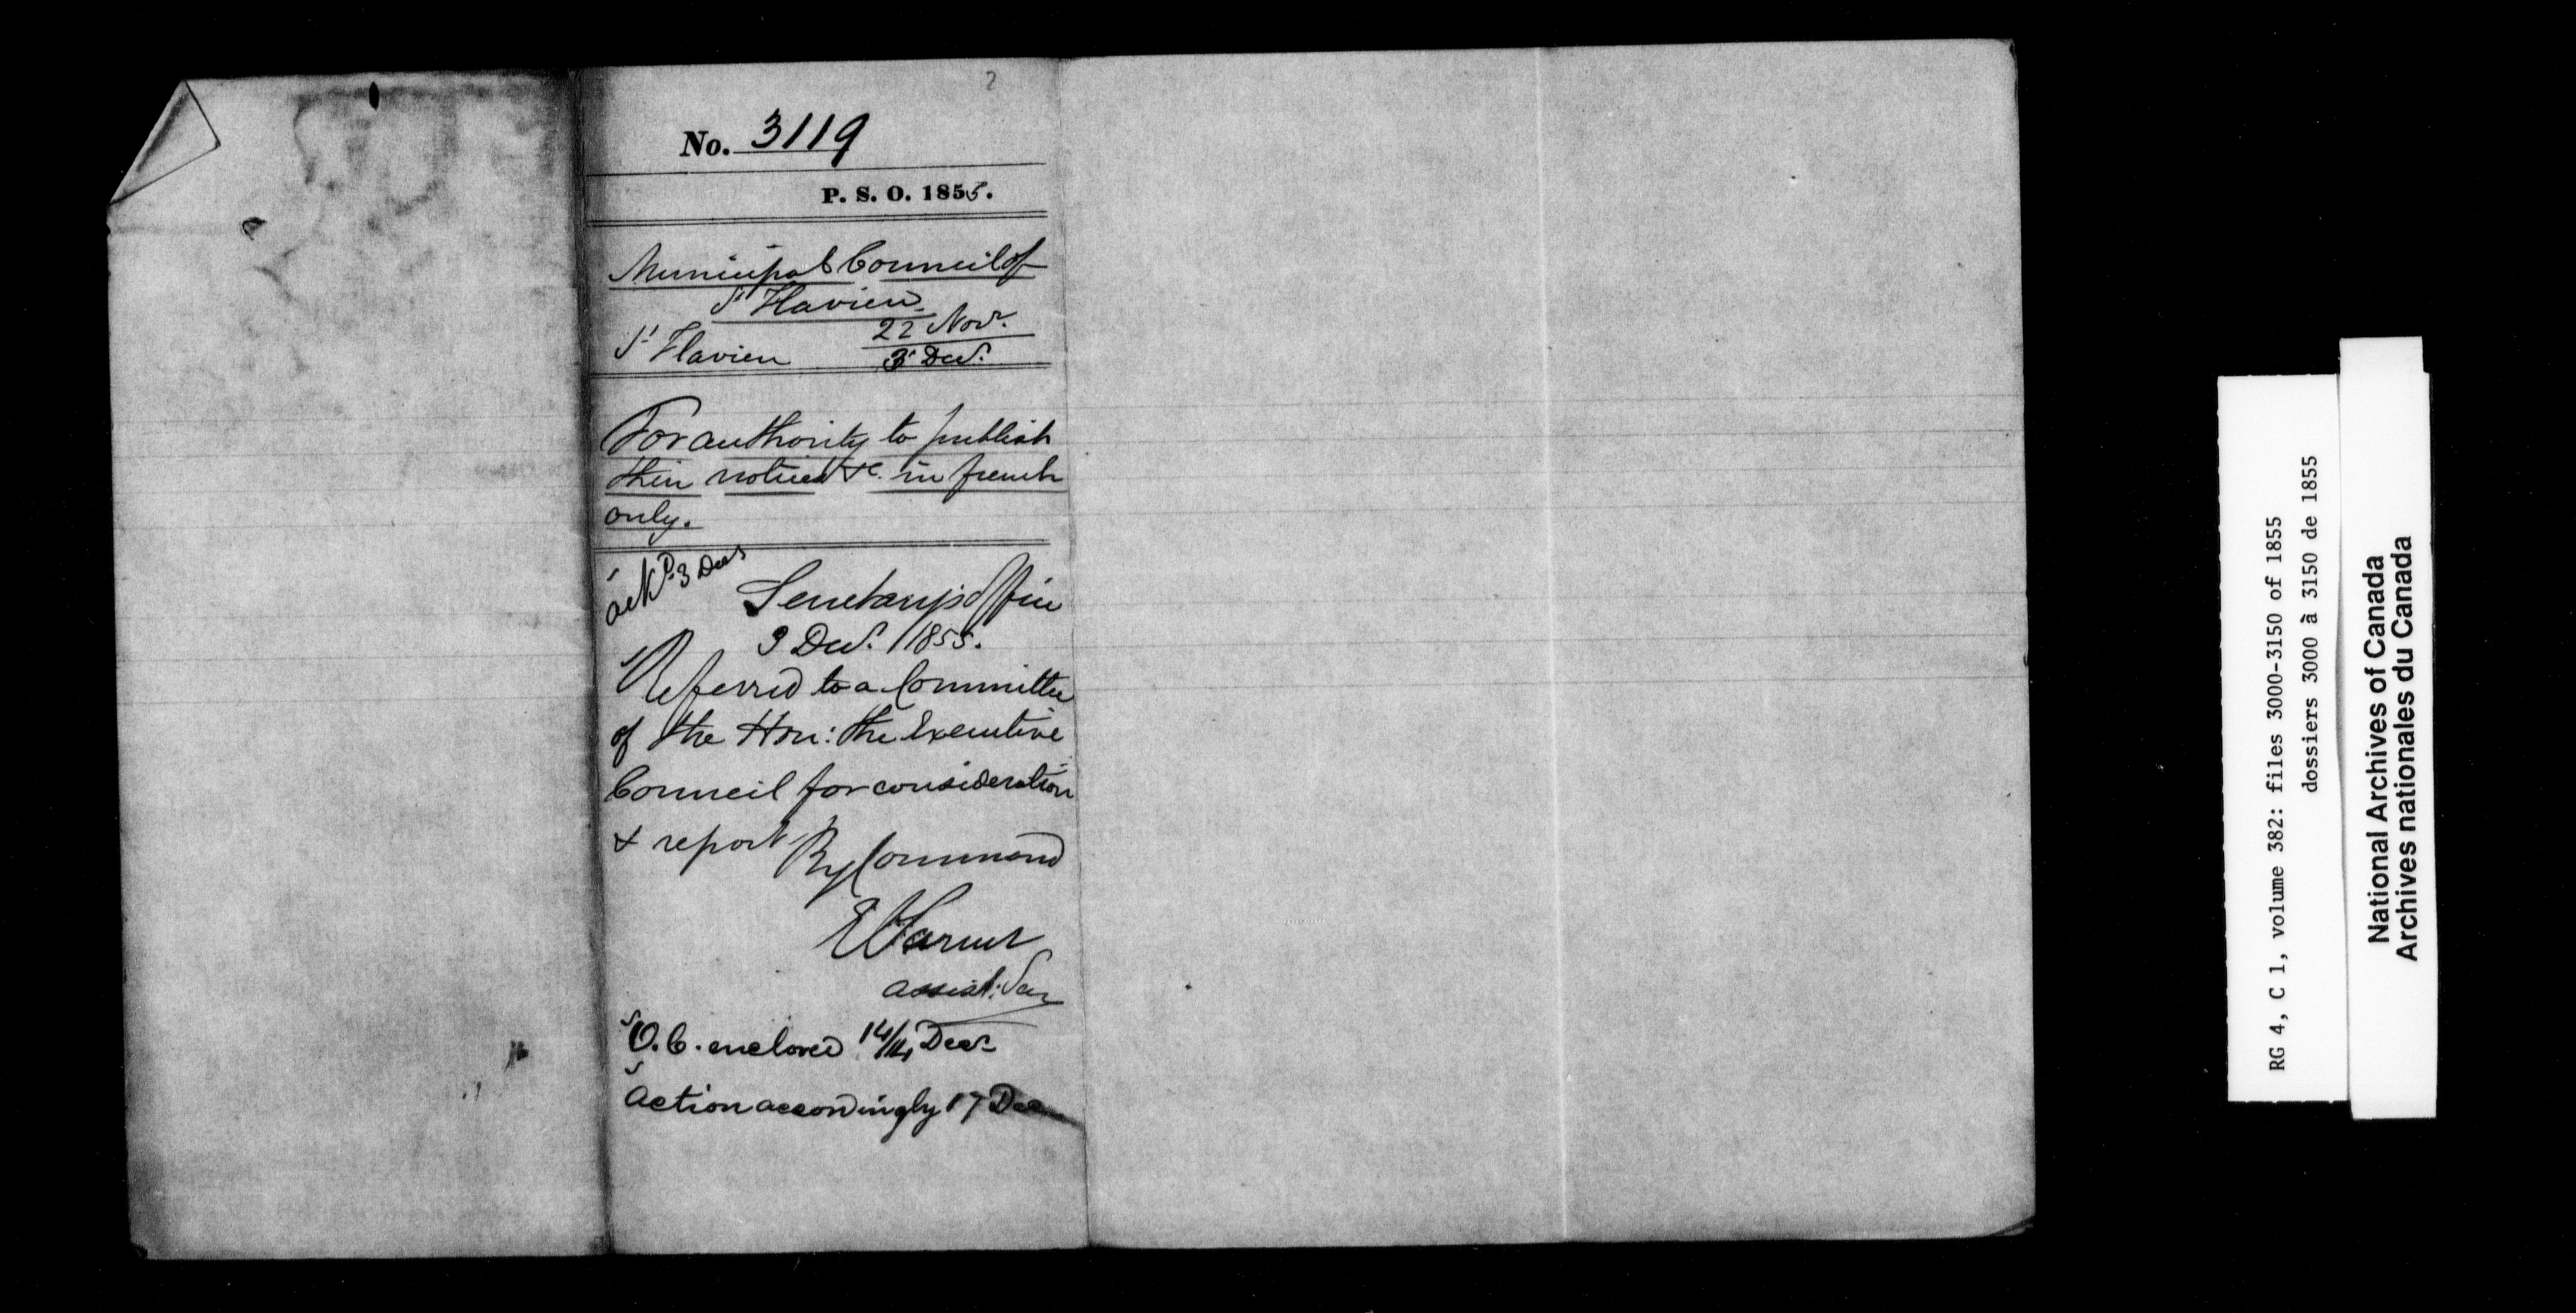 2
No. 3119
P. S. O. 1855.
Municipal Council of
St Flavien
22 Novr.
St Flavien 3 Decr.
For authority to publish
their notices &c. in french
only.
ackd. 3 Decr
Secretary's Office
3 Decr. 1855.
Referred to a Committee
of the Hon: the Executive
Council for consideration
& report
By Command
assist: Secy
O. C. enclosed 14/14 Decr
Action accordingly 17 Dec
RG 4, C 1, volume 382: files 3000-3150 of 1855
dossiers 3000 à 3150 de 1855
National Archives of Canada
Archives nationales du Canada